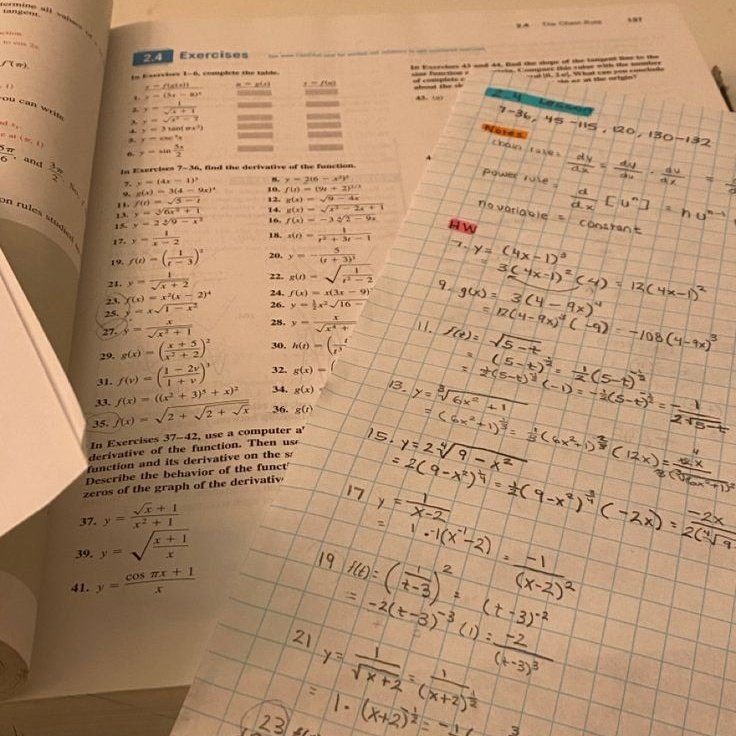 termine all values of
tangent.
ction
f'(π).
ou can write
and
on rules
2.4 The Chain Rule 137
2.4 Exercises
In Exercises 1–6, complete the table.
y = f(g(x)) u = g(x) y = f(u)
1. y = (5x − 8)⁴
4. y = 3 tan(πx²)
5. y = csc³ x
6. y = sin 5x/2
In Exercises 7–36, find the derivative of the function.
7. y = (4x − 1)³
8. y = 2(6 − x²)⁵
9. g(x) = 3(4 − 9x)⁴
10. f(t) = (9t + 2)²/³
11. f(t) = √5 − t
12. g(x) = √9 − 4x
13. y = ∛6x² + 1
14. g(x) = √x² − 2x + 1
15. y = 2∜9 − x²
16. f(x) = −3∜2 − 9x
17. y = 1/(x − 2)
18. s(t) = 1/(t² + 3t − 1)
19. f(t) = (1/(t − 3))²
20. y = 5/(t + 3)³
21. y = 1/√x + 2
22. g(t) = √1/(t² − 2)
23. f(x) = x²(x − 2)⁴
24. f(x) = x(3x − 9)
25. y = x√1 − x²
26. y = ½x²√16 −
27. y = x/√x² + 1
28. y = x/√x⁴ +
29. g(x) = ((x + 5)/(x² + 2))²
30. h(t) =
31. f(v) = ((1 − 2v)/(1 + v))³
32. g(x) =
33. f(x) = ((x² + 3)⁵ + x)²
34. g(x)
35. f(x) = √2 + √2 + √x
36. g(t)
In Exercises 37–42, use a computer a
derivative of the function. Then use
function and its derivative on the s
Describe the behavior of the funct
zeros of the graph of the derivativ
37. y = (√x + 1)/(x² + 1)
39. y = √(x + 1)/x
41. y = (cos πx + 1)/x
In Exercises 43 and 44, find the slope of the tangent line to the
about the
43. (a)
2.4 Lesson
7-36, 45-115, 120, 130-132
Notes
chain rule = dy/dx = dy/du · du/dx =
power rule = d/dx [uⁿ] = nuⁿ⁻¹
no variable = constant
HW
7. y = (4x-1)³
= 3(4x-1)²(4) = 12(4x-1)²
9. g(x) = 3(4-9x)⁴
= 12(4-9x)³(-9) = -108(4-9x)³
11. f(t) = √5-t
= (5-t)^½ = ½(5-t)^-½
= ½(5-t)^-½(-1) = -½(5-t)^-½ = -1/(2√5-t)
13. y = ∛6x²+1
= (6x²+1)^⅓ = ⅓(6x²+1)^⅔(12x) = 4x
15. y = 2∜9-x²
= 2(9-x²)^¼ = ½(9-x²)^¾(-2x) = -2x/2(∜9
17 y = 1/(x-2)
= 1·-1(x⁻¹-2) = -1/(x-2)²
19 f(t) = (1/(t-3))² = (t-3)⁻²
= -2(t-3)⁻³(1) = -2/(t-3)³
21 y = 1/√x+2 = 1/(x+2)^½
= 1·(x+2)^-½ = -½(
23